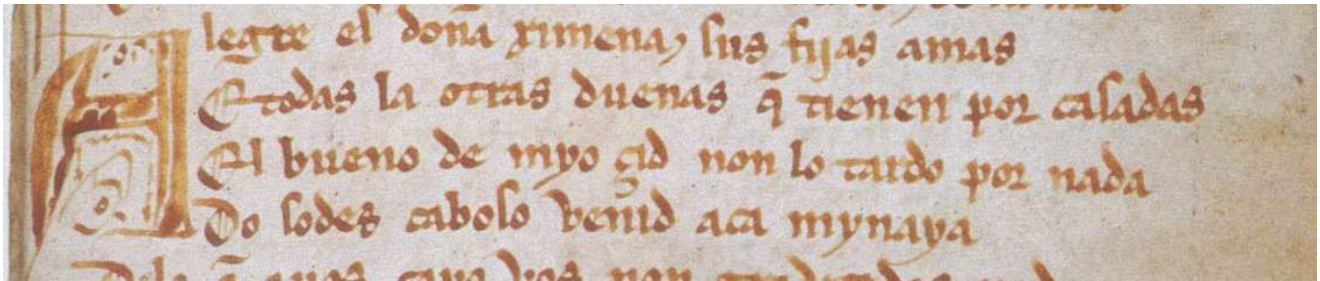 Alegre el doña ximena, sus fijas amas
E todas la otras duenas q̄ tienen por casadas
El bueno de myo çid non lo tardo por nada
Do sodes cabolo venid aca mynaya